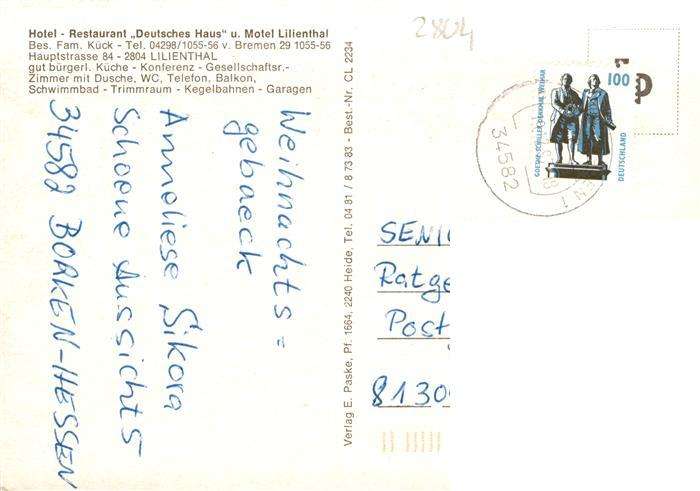 Hotel - Restaurant „Deutsches Haus" u. Motel Lilienthal
Bes. Fam. Kück - Tel. 04298/1055-56 v. Bremen 29 1055-56
Hauptstrasse 84 - 2804 LILIENTHAL
gut bürgerl. Küche - Konferenz - Gesellschaftsr.-
Zimmer mit Dusche, WC, Telefon, Balkon,
Schwimmbad - Trimmraum - Kegelbahnen - Garagen
Weihnachts =
gebaeck
Anneliese Sikora
Schoene Aussicht 5
34582 BORKEN-HESSEN
Verlag E. Paske, Pf. 1664, 2240 Heide, Tel. 04 81 / 8 73 83 - Best.-Nr. CL 2234
2804
100
GOETHE-SCHILLER-DENKMAL WEIMAR
DEUTSCHLAND
34582
EN 1
SENI
Ratge
Post
8130